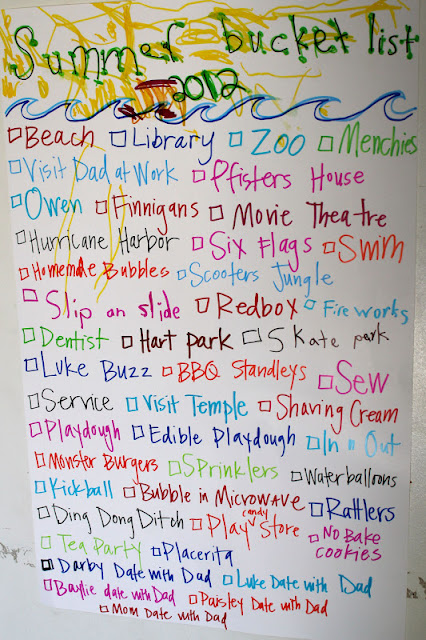 Summer bucket list
2012
Beach Library Zoo Menchies
Visit Dad at Work Pfisters House
Owen Finnigans Movie Theatre
Hurricane Harbor Six Flags Swim
Homemade Bubbles Scooters Jungle
Slip an slide Redbox Fireworks
Dentist Hart park Skate park
Luke Buzz BBQ Standleys Sew
Service Visit Temple Shaving Cream
Playdough Edible Playdough In n Out
Monster Burgers Sprinklers Waterballoons
Kickball Bubble in Microwave Rattlers
Ding Dong Ditch Play candy Store No Bake cookies
Tea Party Placerita
Darby Date with Dad Luke Date with Dad
Baylie date with Dad Paisley Date with Dad
Mom Date with Dad